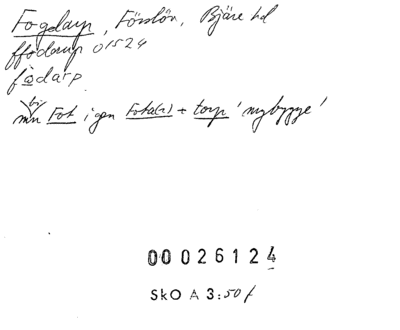 Fogdarp, Förslöv, Bjäre hd
ffodarup 01524
fodarp
bin
mn Fot i gen Fota(r) + torp 'nybygge'
00026124
SkO A 3:50f